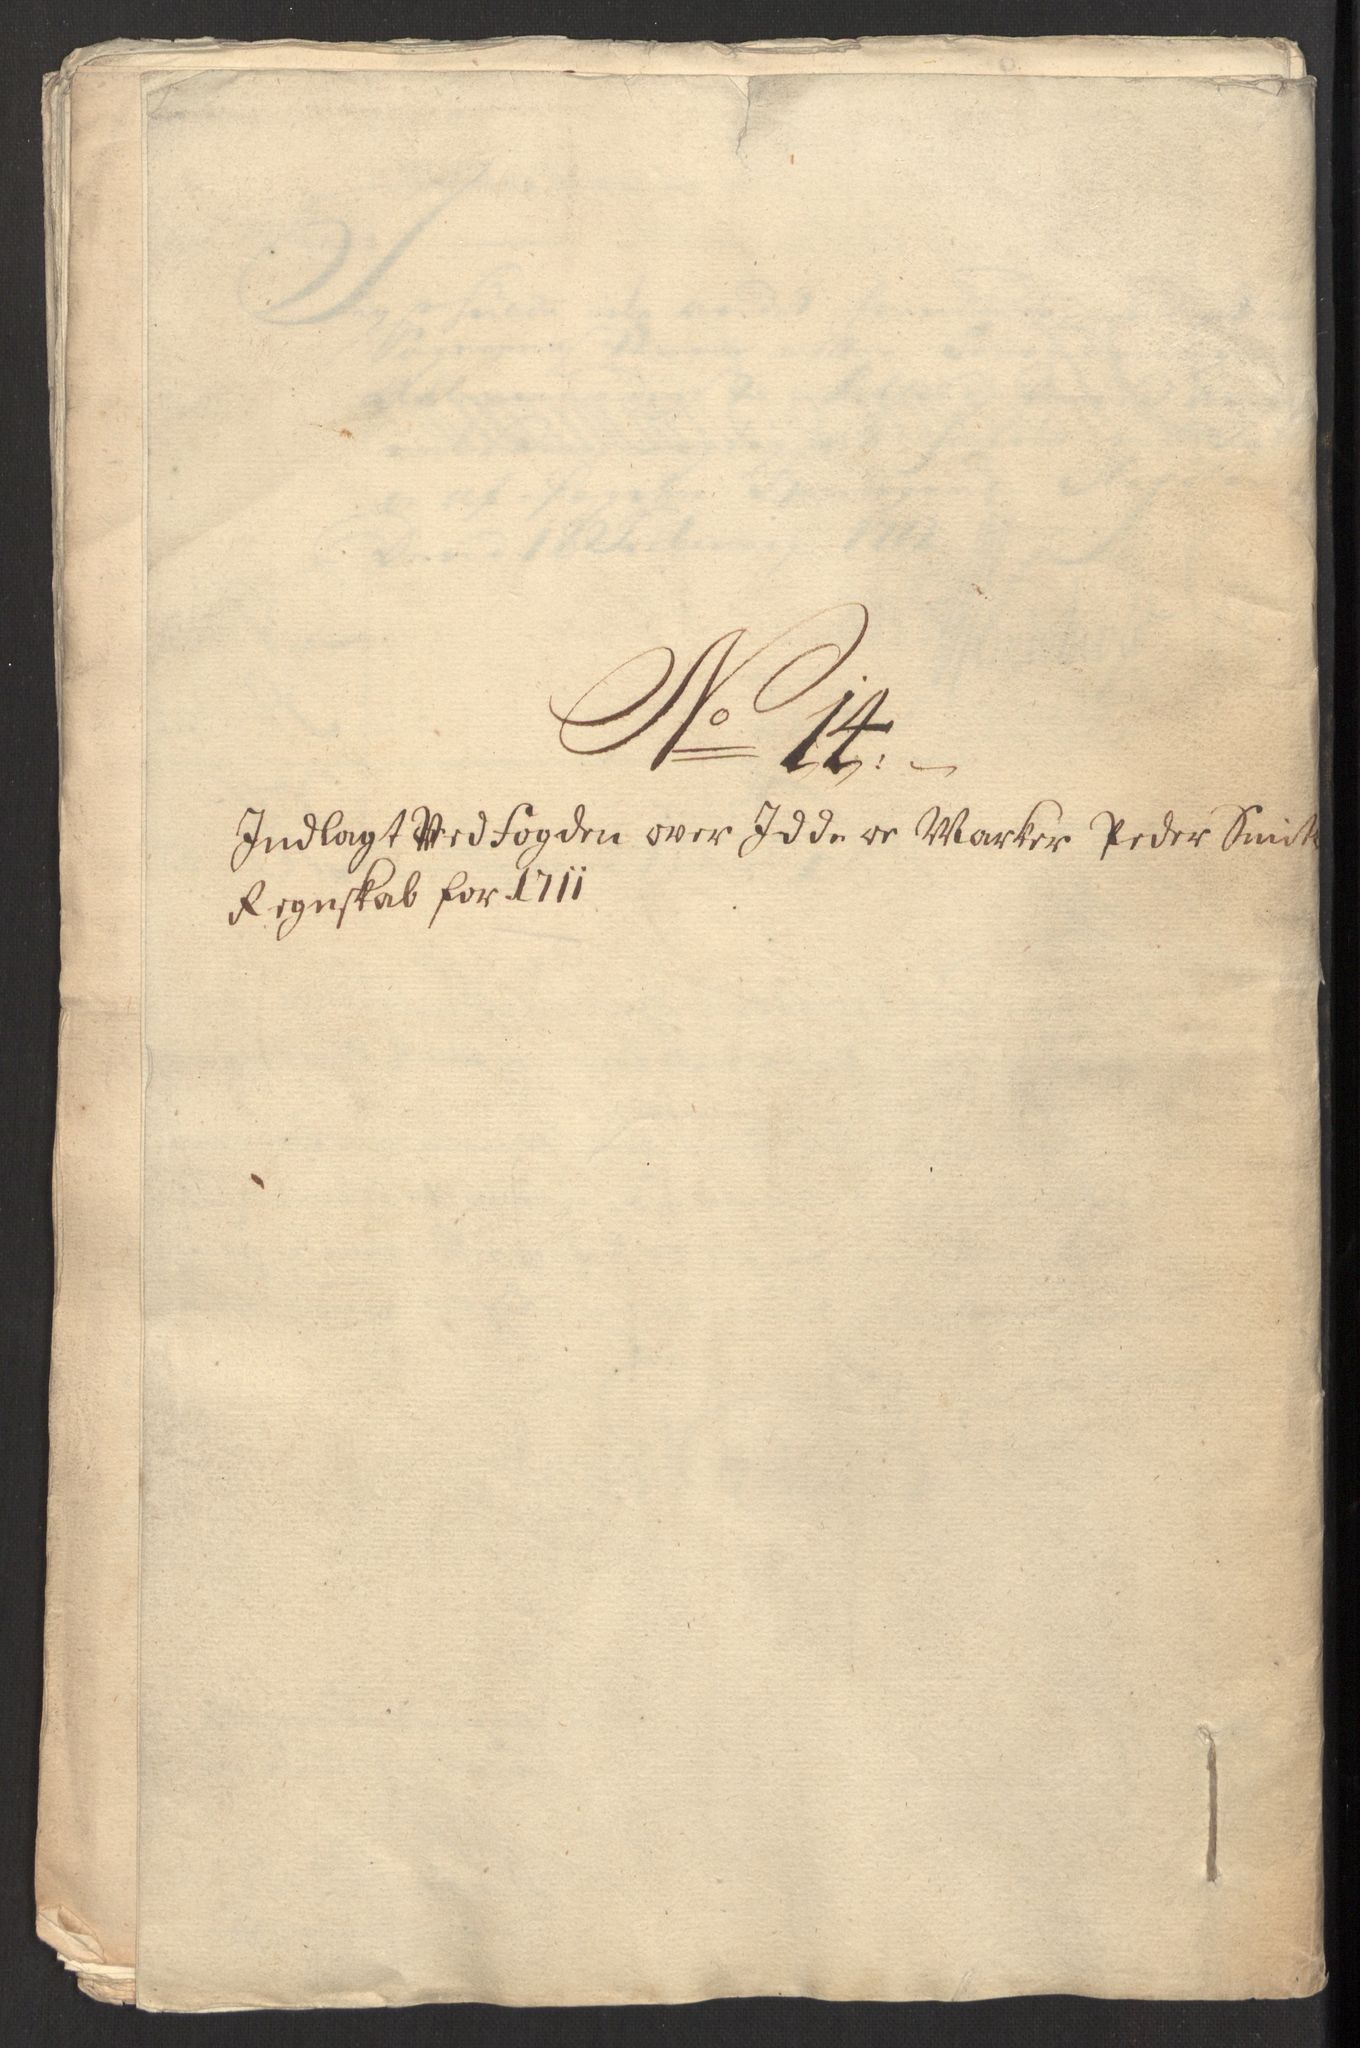 No 14.
Indlagt Ved Fogden over Idde oc Marker Peder Smits
Regnskab for 1711